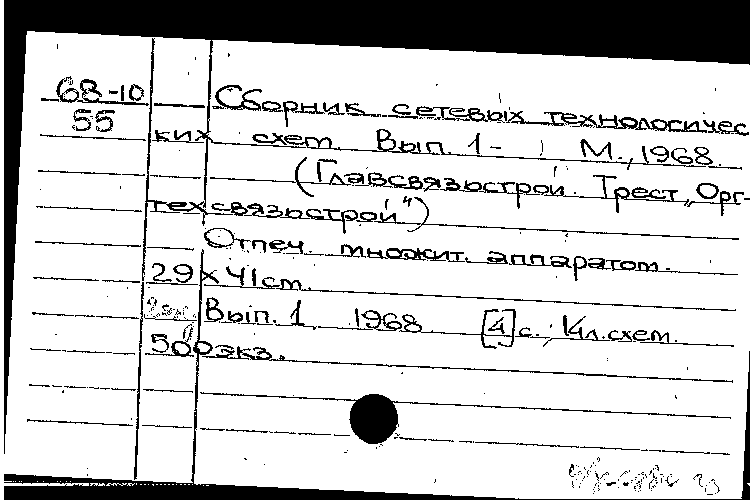 68-10
55
Сборник сетевых технологичес
ких схем. Вып. 1- М., 1968.
(Главсвязьстрой. Трест „Орг-
техсвязьстрой")
Отпеч. множит. аппаратом.
29 x 41 см.
Вып. 1. 1968 [4] с.; 14 л. схем.
500 экз.